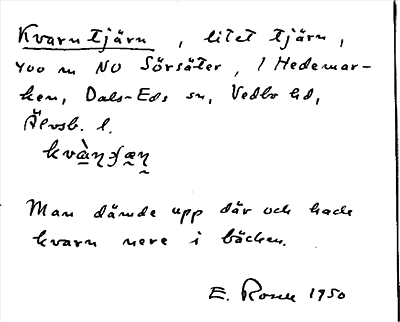 Kvarntjärn, litet tjärn,
400 m NO Sörsäter, i Hedemar-
ken, Dals-Eds sn, Vedbo hd,
Älvsb. l.
Man dämde upp där och hade
kvarn nere i bäcken.
E. Rosen 1950